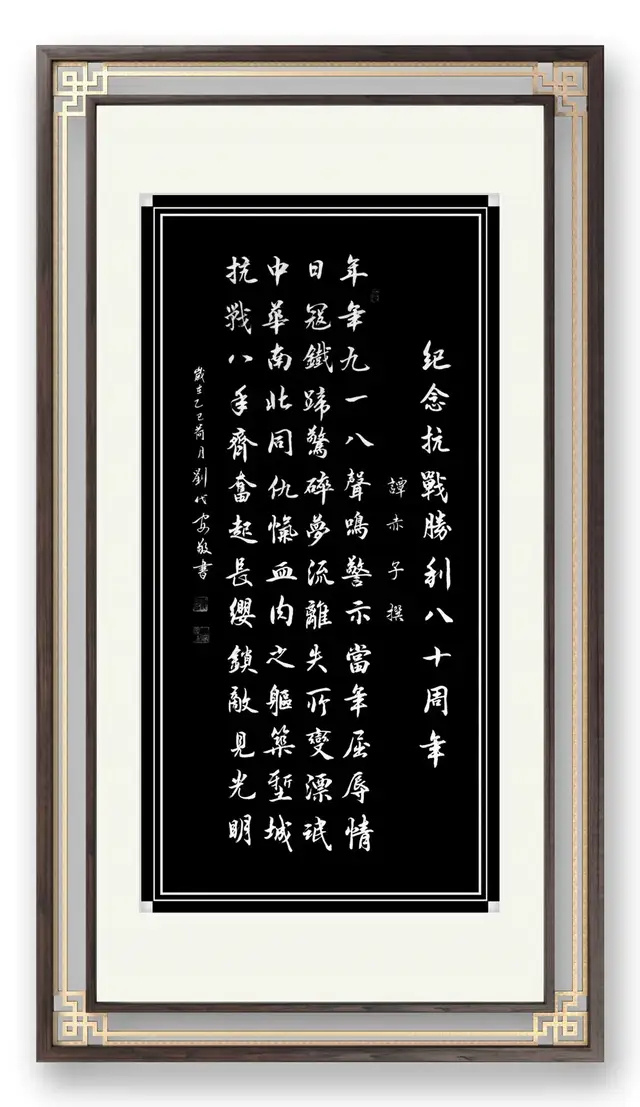 紀念抗戰勝利八十周年
譚赤子撰
年年九一八聲鳴警示當年屈辱情
日寇鐵蹄驚碎夢流離失所變漂氓
中華南北同仇愾血肉之軀築塹城
抗戰八年齊奮起長纓鎖敵見光明
歲在乙巳荷月劉代安敬書